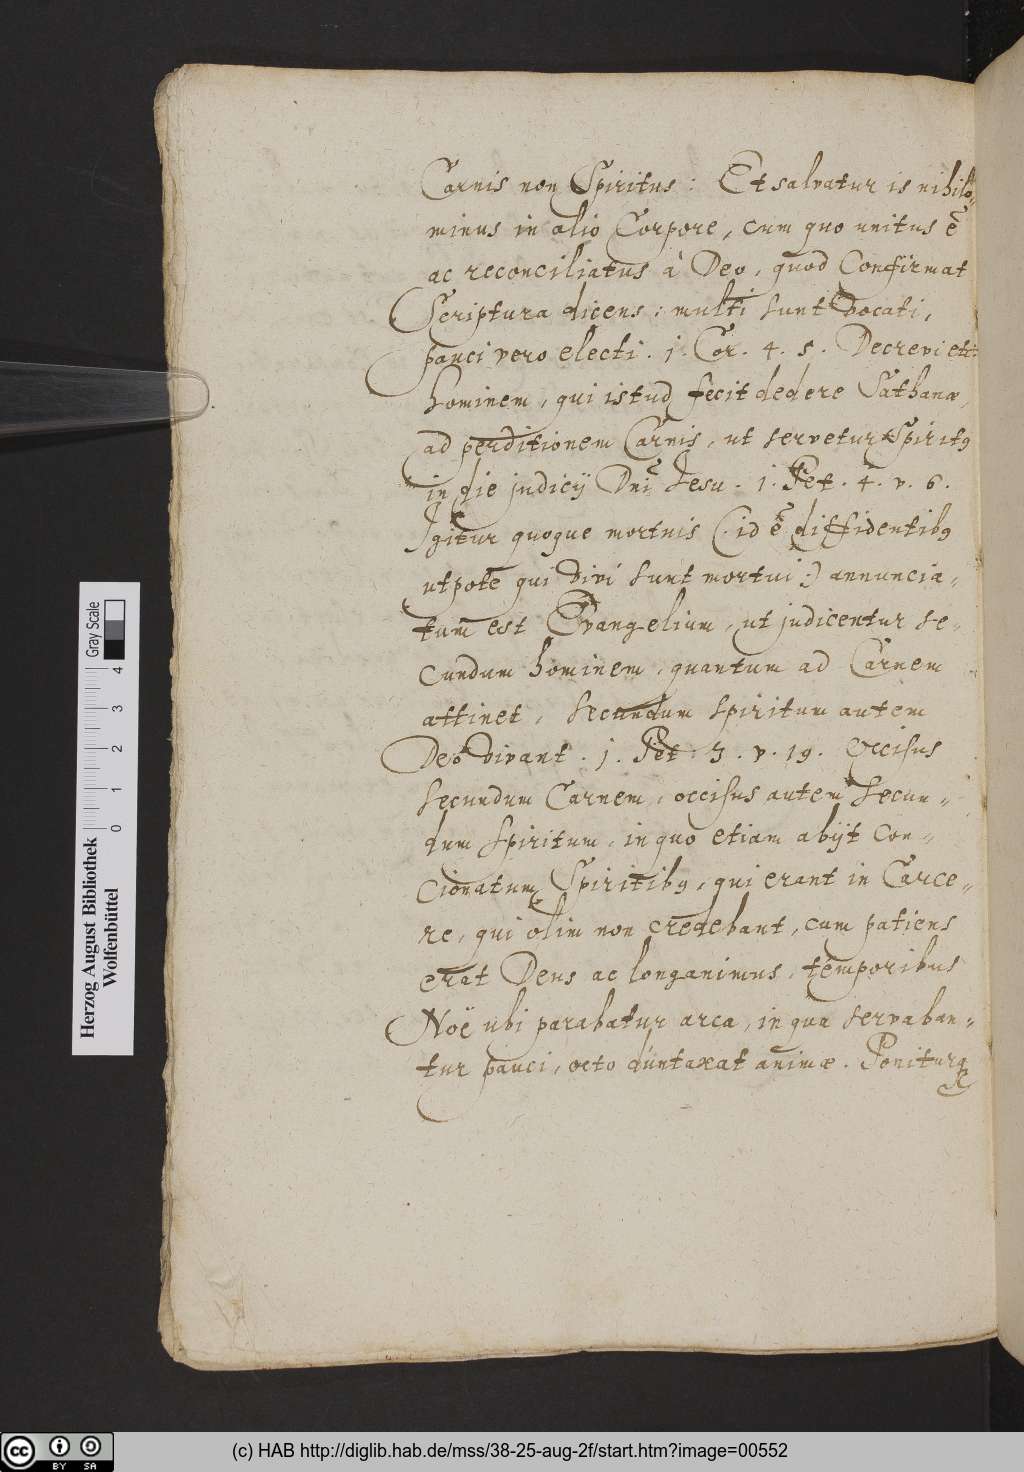 Carnis non Spiritus: Et salvatur is nihilo-
minus in alio Corpore, cum quo unitus ē
ac reconciliatus à Deo, quod Confirmat
Scriptura dicens: multi sunt vocati,
pauci vero electi. 1. Cor. 4. 5. Decrevi etc
hominem, qui istud fecit dedere Sathanæ,
ad perditionem Carnis, ut servetur Spiritꝰ
in die judicij Dni Jesu. 1. Pet. 4. v. 6.
Igitur quoque mortuis (:id ē diffidentibꝰ
utpote qui vivi sunt mortui:) annuncia-
tum est Evangelium, ut judicentur se-
cundum hominem, quantum ad Carnem
attinet, secundum spiritum autem
Deo vivant. 1. Pet. 3. v. 19. Occisus
secundum Carnem, occisus autem secun-
dum spiritum, in quo etiam abijt con-
cionatum Spiritibꝰ, qui erant in Carce-
re, qui olim non credebant, cum patiens
erat Deus ac longanimus, temporibus
Noë ubi parabatur arca, in qua servaban-
tur pauci, octo duntaxat animæ. Poniturq
Herzog August Bibliothek
Wolfenbüttel
0 1 2 3 4
Gray Scale
cc BY SA
(c) HAB http://diglib.hab.de/mss/38-25-aug-2f/start.htm?image=00552